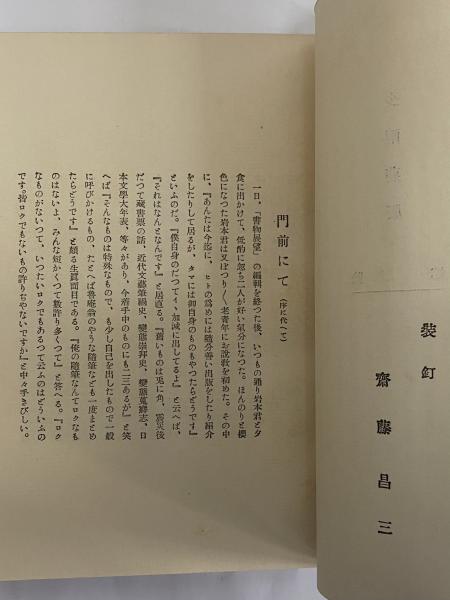 裝釘
齋藤昌三
門前にて（序に代へて）
一日、『書物展望』の編輯を終つた後、いつもの通り岩本君と夕
食に出かけて、低酌に忽ち二人が好い氣分になつた。ほんのりと櫻
色になつた岩本君は又ぽつり〳〵老青年にお說敎を初めた。その中
に、『あんたは今迄に、ヒトの爲めには隨分善い出版をしたり紹介
をしたりして居るが、タマには御自身のものもやつたらどうです』
といふのだ。『僕自身のだつてイヽ加減に出してるよ』と云へば、
『それはなんとなんです』と居直る。『舊いものは兎に角、震災後
だつて藏書票の話、近代文藝筆禍史、變態崇拜史、變態蒐癖志、日
本文學大年表、等々があり、今着手中のものも二三あるが』と笑
へば『そんなものは特殊なもので、も少し自己を出したもので一般
に呼びかけるもの、たとへば魯庵翁のやうな隨筆なども一度まとめ
たらどうです』と頗る生眞面目である。『俺の隨筆なんてロクなも
のはないよ、みんな短かくつて數許り多くつて』と答へる。『ロク
なものがないつて、いつたいロクでもあるつて云ふのはどういふの
です。皆ロクでもないもの許りぢやないですか』と中々手きびしい。